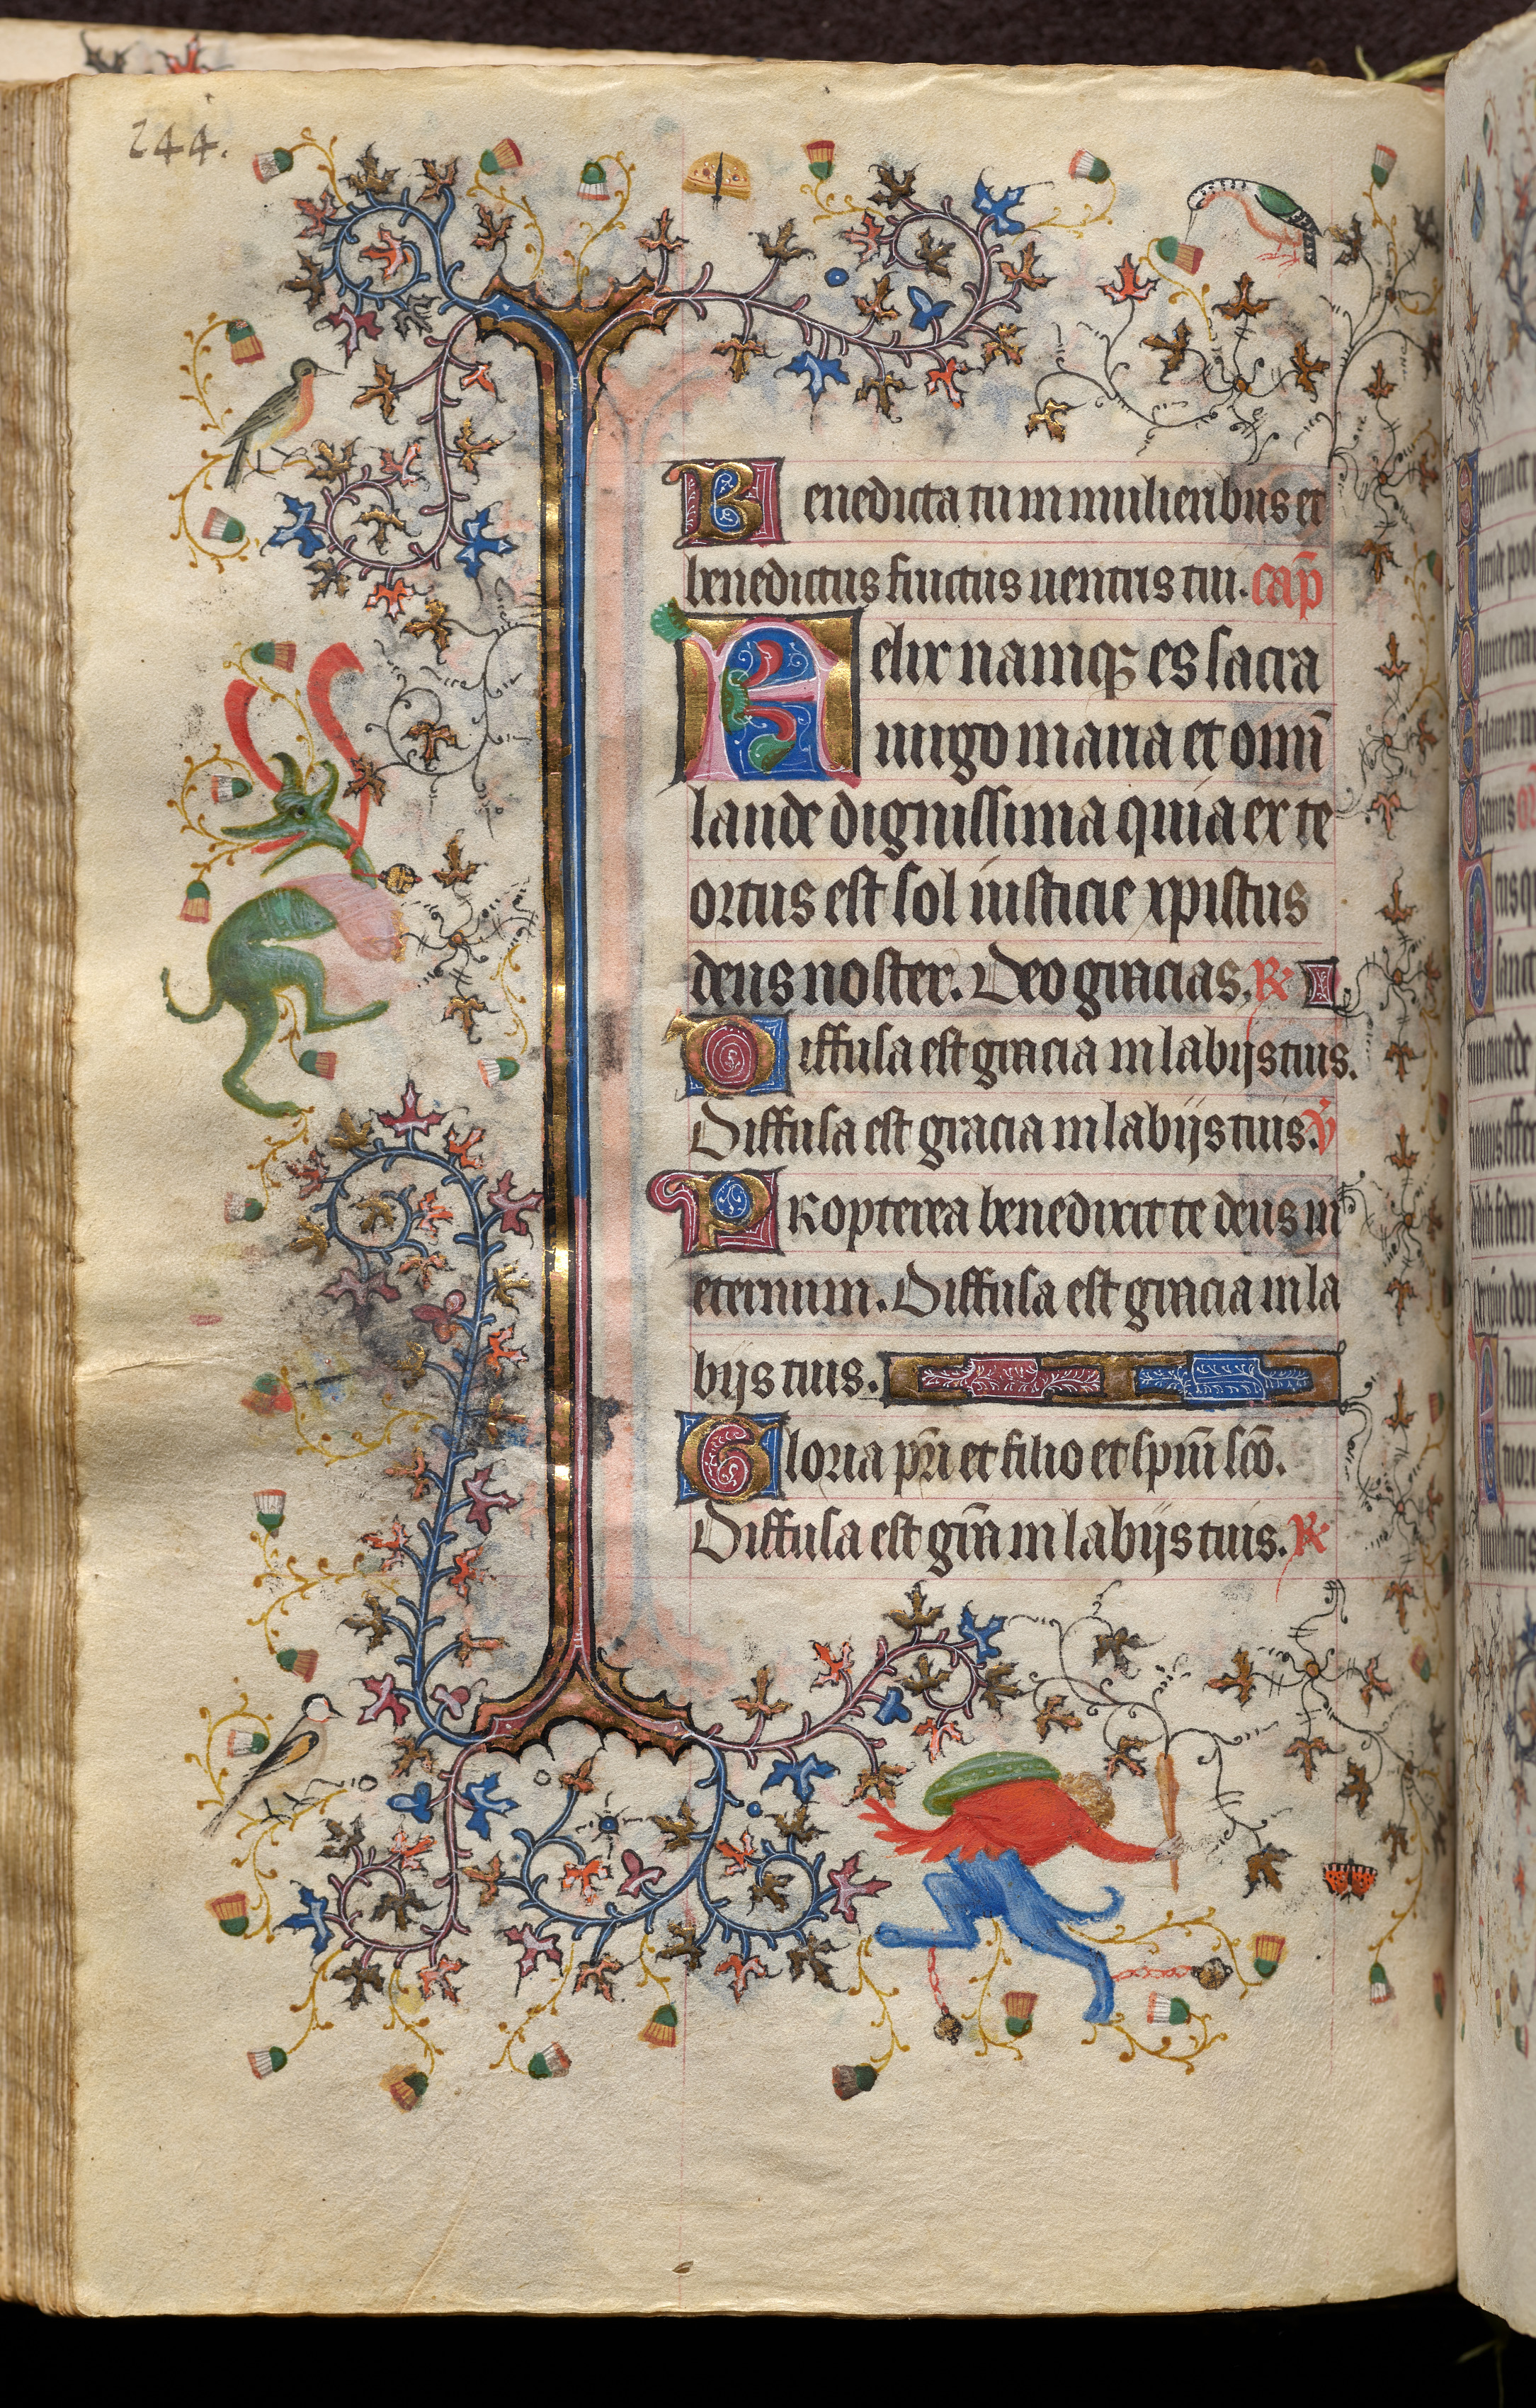 244.
Benedicta tu in mulieribus et
benedictus fructus uentris tui. cap̄
Felix namqꝫ es sacra
uirgo maria et om̄i
laude dignissima quia ex te
ortus est sol iusticie xpistus
deus noster. Deo gracias. ℞
Diffusa est gracia in labijs tuis.
Diffusa est gracia in labijs tuis. v̄
PRopterea benedixit te deus in
eternum. Diffusa est gracia in la
bijs tuis.
Gloria pr̄i et filio et spiūi scō.
Diffusa est gr̄a in labijs tuis. ℞